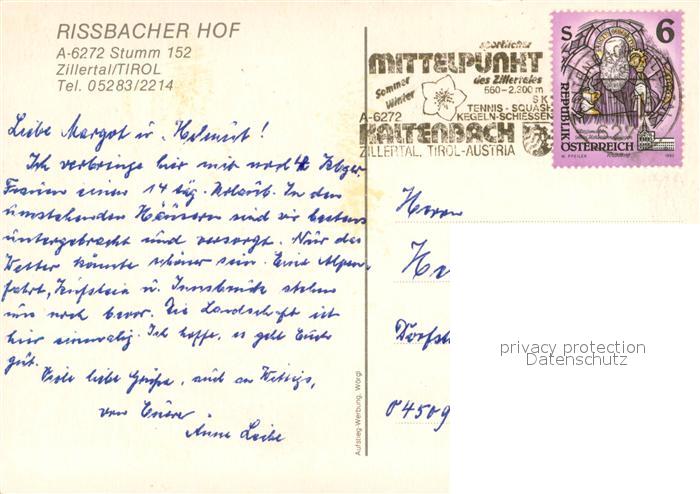 RISSBACHER HOF
A-6272 Stumm 152
Zillertal/TIROL
Tel. 05283/2214
sportlicher
MITTELPUNKT
des Zillertales
Sommer
Winter
560-2.300 m
SKI
TENNIS-SQUASH
A-6272
KEGELN-SCHIESSEN
KALTENBACH
ZILLERTAL, TIROL-AUSTRIA
S 6
REPUBLIK
ÖSTERREICH
W. PFEILER
Liebe Margot u. Helmut!
Ich verbringe hier mit noch 4
Frauen einen 14 täg. Urlaub. In den
umstehenden Häusern sind wir bestens
untergebracht und versorgt. Nur das
Wetter könnte schöner sein. Eine Alpen-
fahrt, Kufstein u. Innsbruck stehen
uns noch bevor. Die Landschaft ist
hier einmalig. Ich hoffe, es geht Euch
gut.
Viele liebe Grüße, auch an Wittigs,
von Eurer
Anne Leibe
Herrn
He
Dorfst
04509
Aufstieg-Werbung, Wörgl
privacy protection
Datenschutz